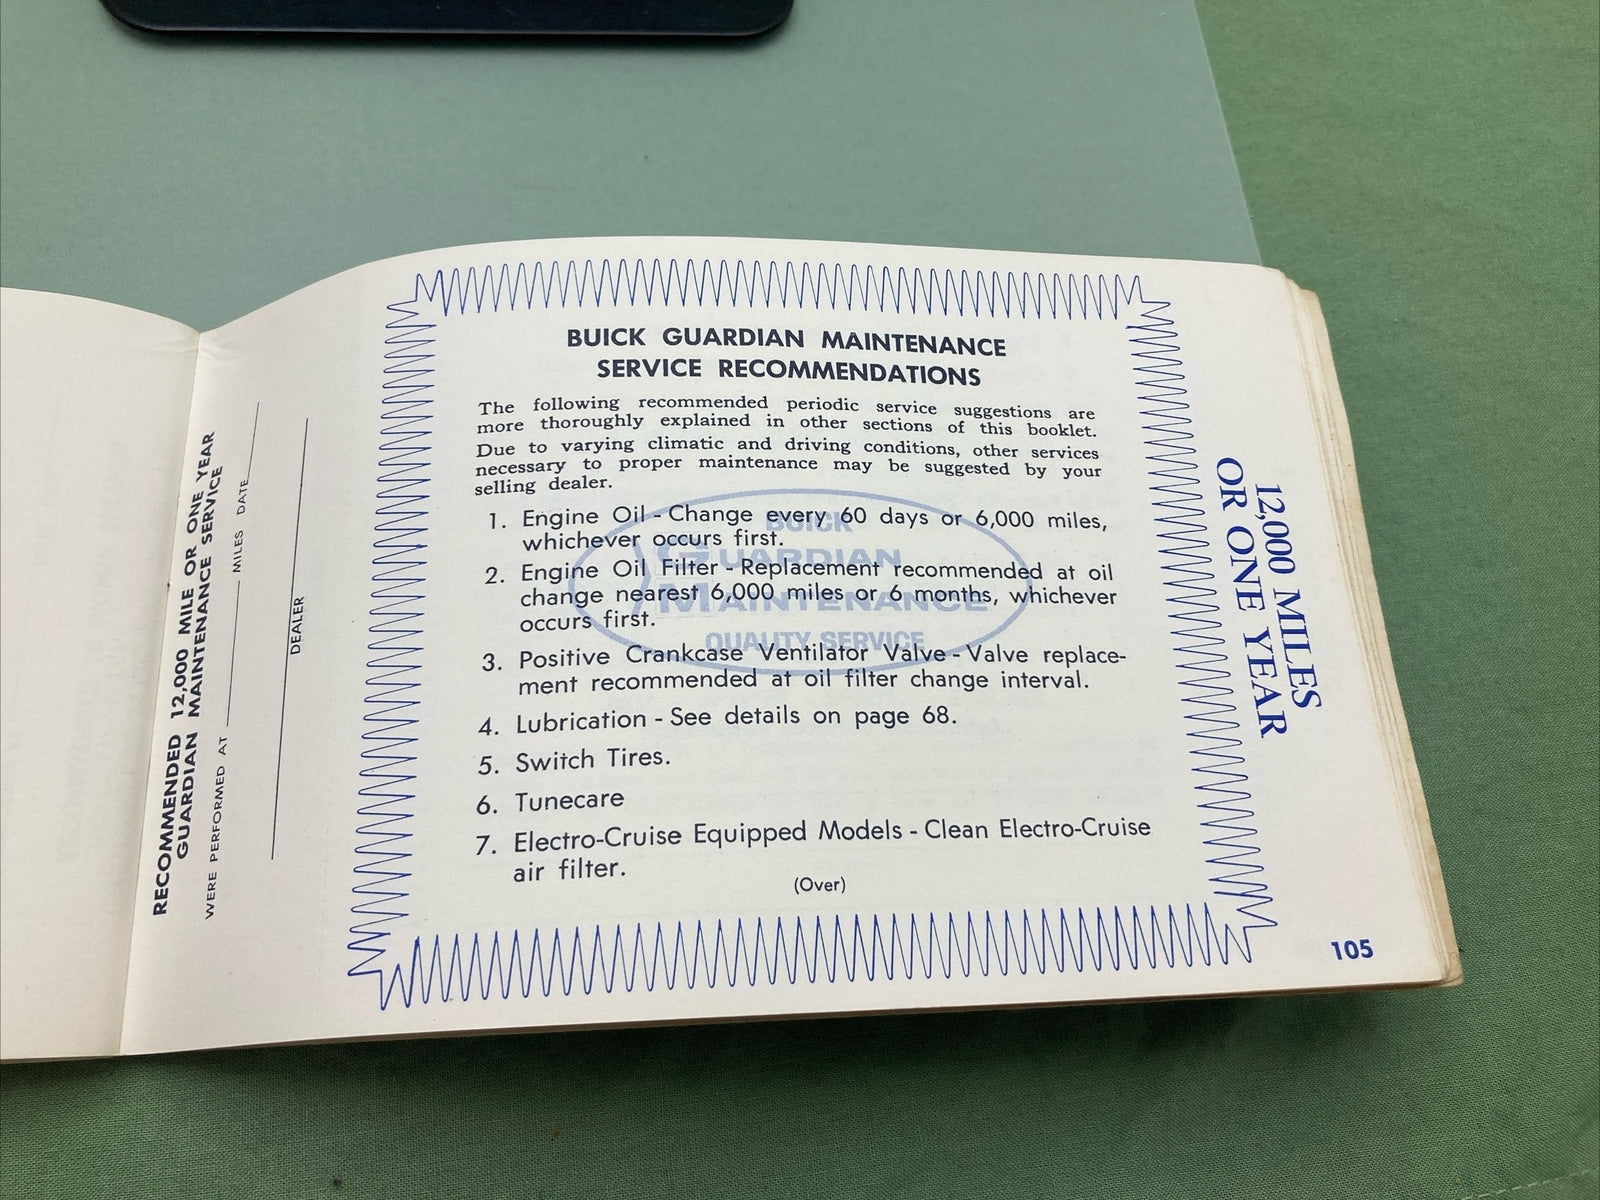 RECOMMENDED 12,000 MILE OR ONE YEAR
GUARDIAN MAINTENANCE SERVICE
WERE PERFORMED AT MILES DATE
DEALER
BUICK GUARDIAN MAINTENANCE
SERVICE RECOMMENDATIONS
The following recommended periodic service suggestions are
more thoroughly explained in other sections of this booklet.
Due to varying climatic and driving conditions, other services
necessary to proper maintenance may be suggested by your
selling dealer.
1. Engine Oil - Change every 60 days or 6,000 miles,
whichever occurs first.
2. Engine Oil Filter - Replacement recommended at oil
change nearest 6,000 miles or 6 months, whichever
occurs first.
3. Positive Crankcase Ventilator Valve - Valve replace-
ment recommended at oil filter change interval.
4. Lubrication - See details on page 68.
5. Switch Tires.
6. Tunecare
7. Electro-Cruise Equipped Models - Clean Electro-Cruise
air filter.
(Over)
BUICK
GUARDIAN
MAINTENANCE
QUALITY SERVICE
12,000 MILES
OR ONE YEAR
105